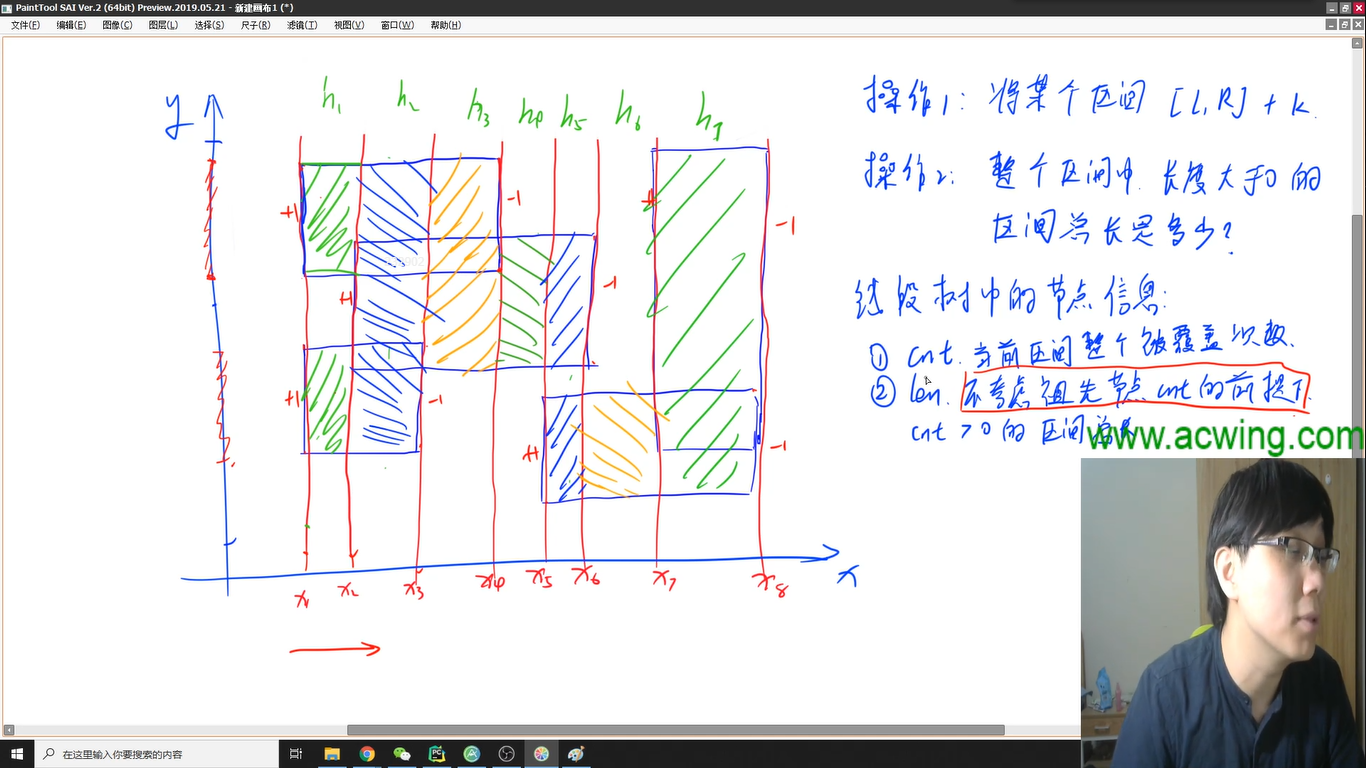 PaintTool SAI Ver.2 (64bit) Preview.2019.05.21 - 新建画布1 (*)
文件(F) 编辑(E) 图像(C) 图层(L) 选择(S) 尺子(R) 滤镜(T) 视图(V) 窗口(W) 帮助(H)
y
h1 h2 h3 h4 h5 h6 h7
+1 -1 +1 -1
+1 -1
+1 -1
+1 -1
x1 x2 x3 x4 x5 x6 x7 x8
x
操作1: 将某个区间 [L,R] + k.
操作2: 整个区间中, 长度大于0的
区间总长是多少?
线段树中的节点信息:
① cnt. 当前区间整个被覆盖次数.
② len. 不考虑祖先节点cnt的前提下,
cnt > 0 的 区间总长
www.acwing.com
在这里输入你要搜索的内容